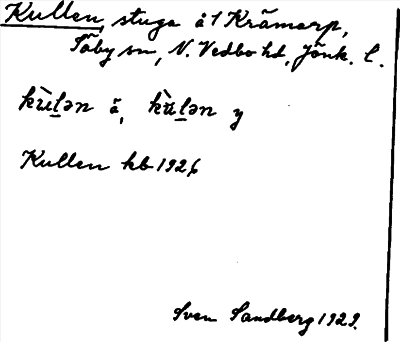 Kullen, stuga å 1 Krämarp,
Säby sn, N. Vedbo hd, Jönk. l.
kùlən ä, kùlən y
Kullen kb 1926
Sven Sandberg 1929.